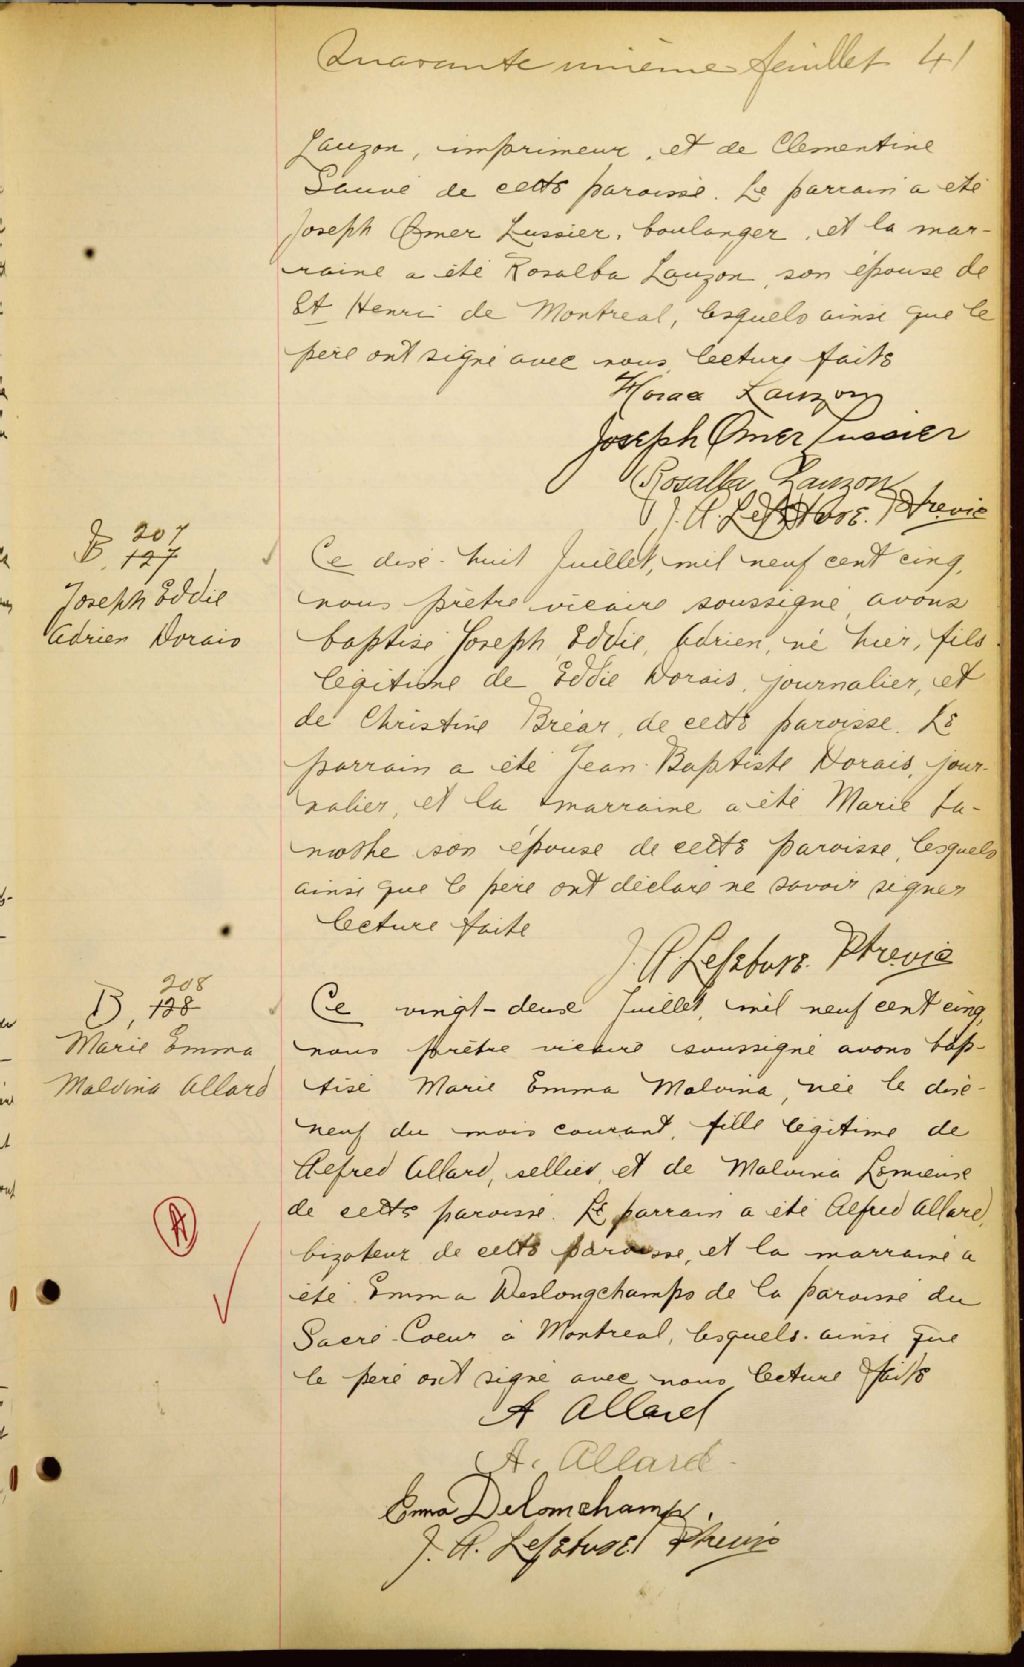 Quarante unième feuillet 41
Lauzon, imprimeur, et de Clementine
Sauvé de cette paroisse. Le parrain a été
Joseph Omer Lussier, boulanger, et la mar-
raine a été Rosalba Lauzon, son épouse de
St Henri de Montreal, lesquels ainsi que le
père ont signé avec nous lecture faite
Horace Lauzon
Joseph Omer Lussier
Rosalba Lauzon
J. A. Lefebvre. Ptre. vic
B. 207
127
Joseph Eddie
Adrien Dorais
Ce dix-huit Juillet, mil neuf cent cinq,
nous prêtre vicaire soussigné avons
baptisé Joseph, Eddie, Adrien, né hier, fils
légitime de Eddie Dorais, journalier, et
de Christine Bréar, de cette paroisse. Le
parrain a été Jean-Baptiste Dorais, jour-
nalier, et la marraine a été Marie La-
mothe son épouse de cette paroisse, lesquels
ainsi que le père ont déclaré ne savoir signer
lecture faite
J. A. Lefebvre. Ptre. vic
B. 208
128
Marie Emma
Malvina Allard
Ce vingt-deux Juillet, mil neuf cent cinq,
nous prêtre vicaire soussigné avons bap-
tisé Marie Emma Malvina, née le dix-
neuf du mois courant, fille légitime de
Alfred Allard, sellier, et de Malvina Lemieux
de cette paroisse. Le parrain a été Alfred Allard,
bizoteur de cette paroisse, et la marraine a
été Emma Deslongchamps de la paroisse du
Sacré-Coeur à Montreal, lesquels ainsi que
le père ont signé avec nous lecture faite
A
A Allard
A. Allard
Emma Delomchamp.
J. A. Lefebvre Ptre vic